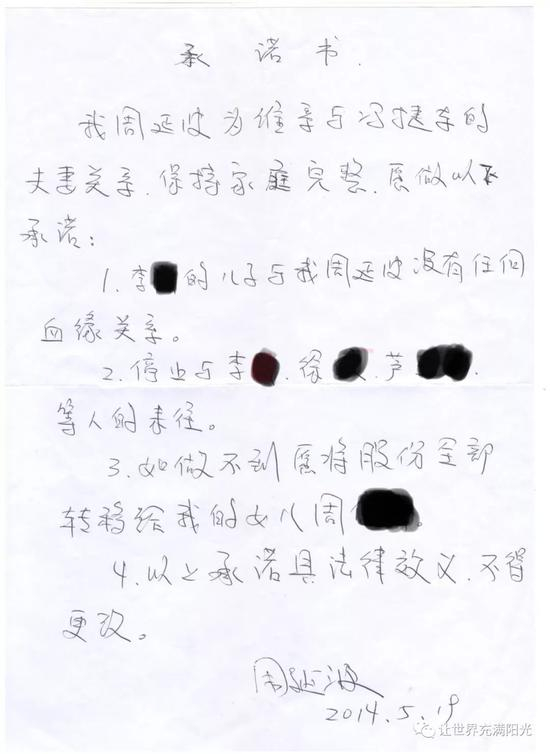 承诺书.
我周延波为维系与冯捷东的
夫妻关系.保持家庭完整.愿做以下
承诺:
1.李 的儿子与我周延波没有任何
血缘关系。
2.停止与李 .徐 .芦 .
等人的来往。
3.如做不到愿将股份全部
转移给我的女儿周 。
4.以上承诺具法律效义.不得
更改。
周延波
2014.5.19
让世界充满阳光